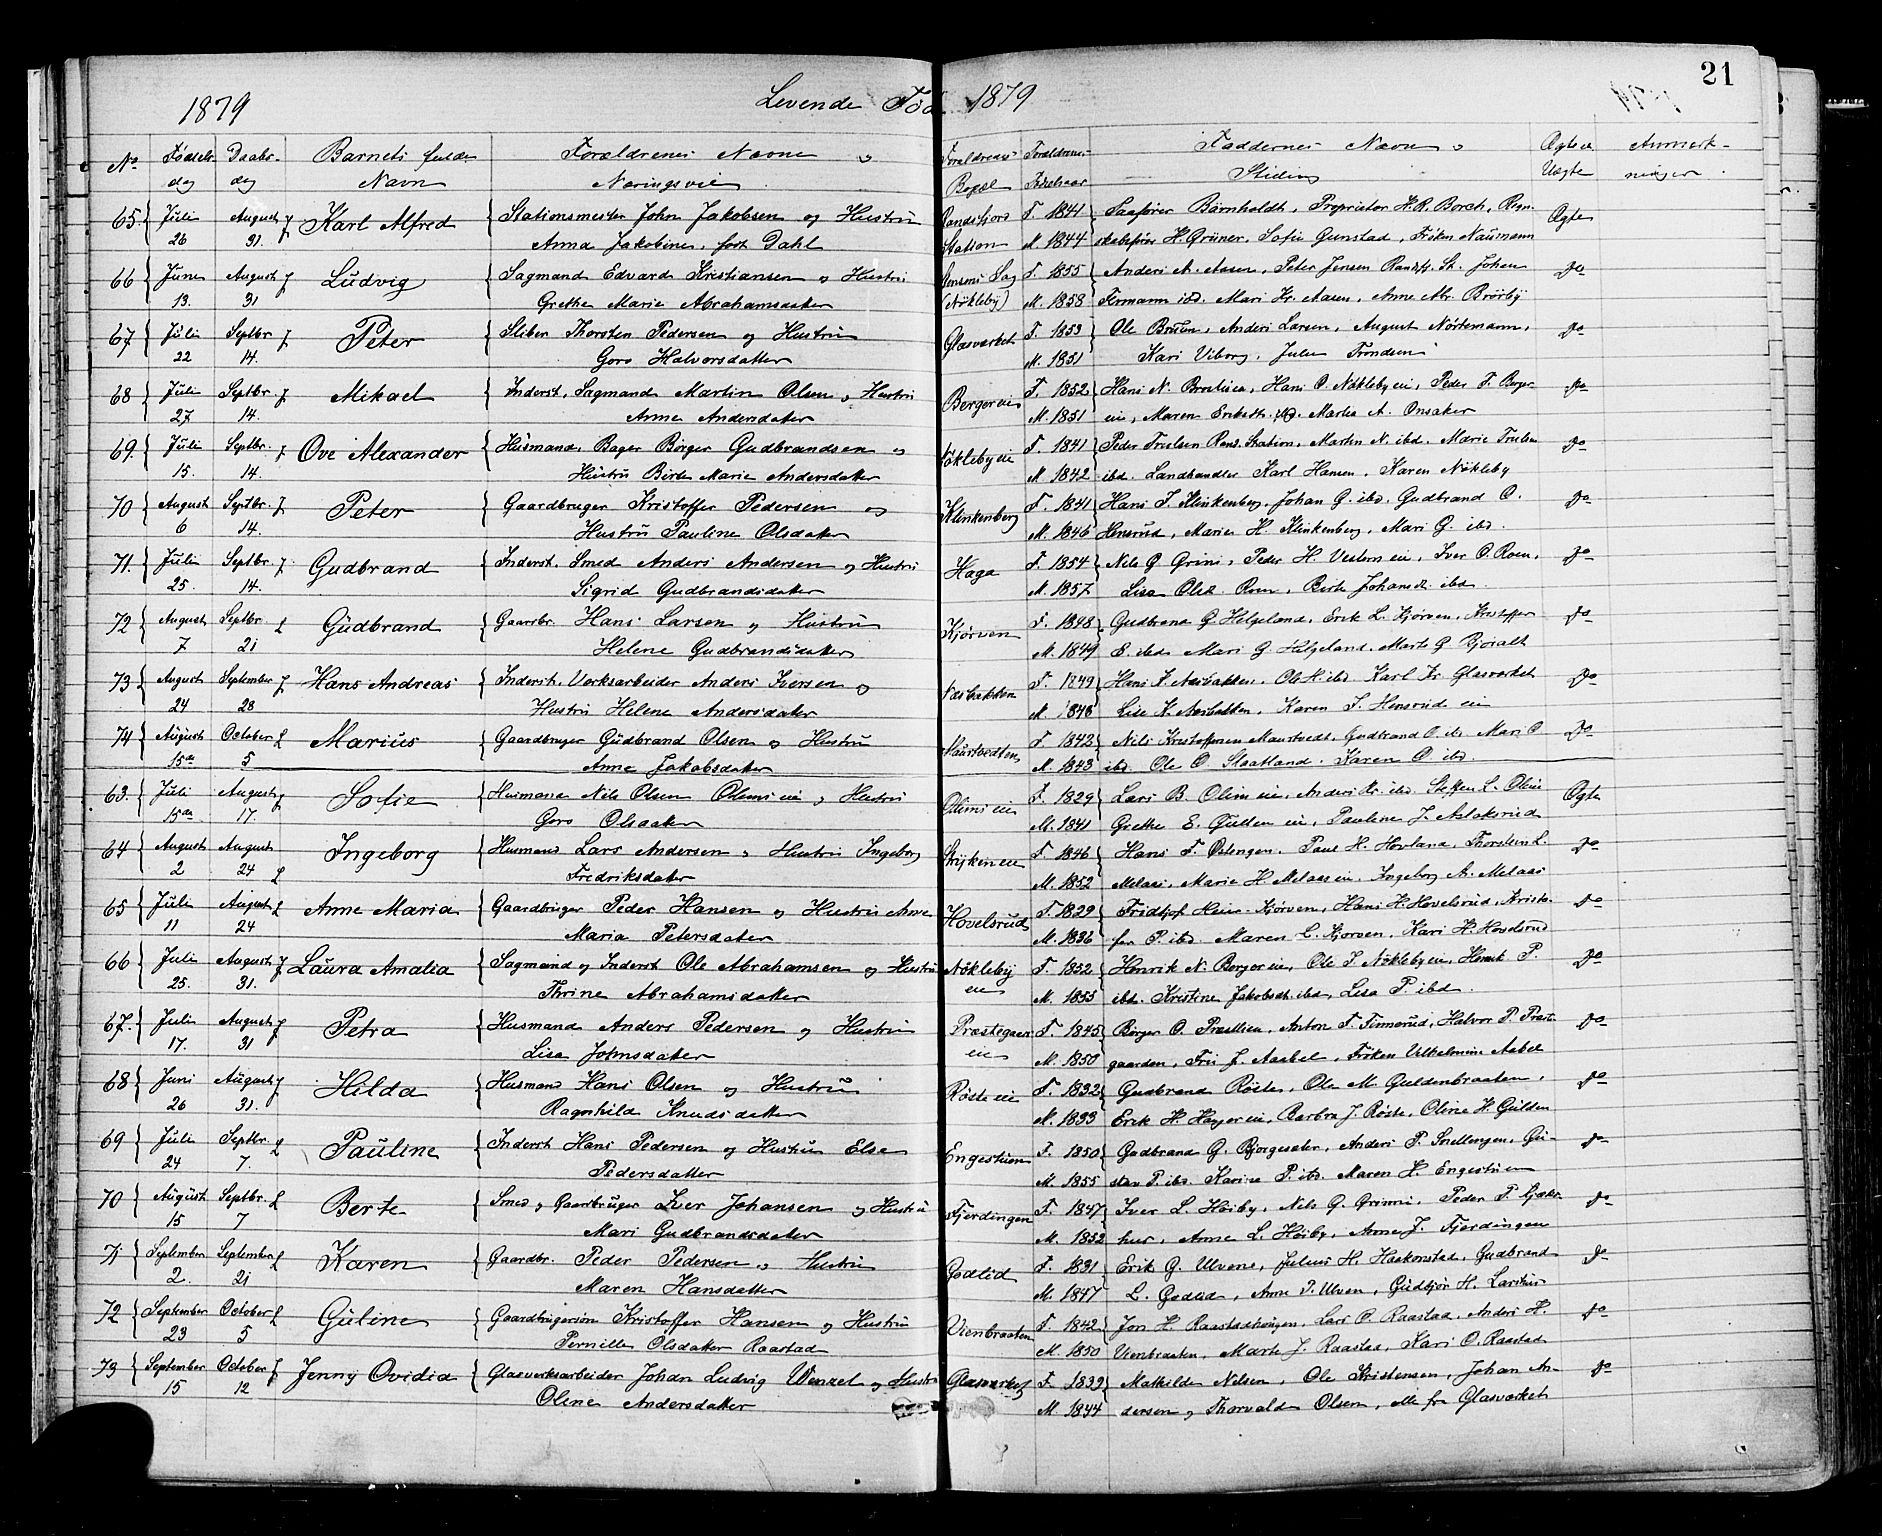 21
1879 Levende Fød 1879
No Fødsels- Daabs- Barnets fulde Forældrenes Navne o Forældrenes Forældrenes Faddernes Navne o Ægte el Anmærk-
dag dag Navn Næringsvei Bopæl Fødselsaar Stilling Uægte ninger.
65. Juli August Karl Alfred Stationsmester John Jakobsen og Hustru Randsfjord F. 1841 Proprietær H. R. Borch, Regn- Ægte
26 31. Anna Jakobine, født Dahl Station M. 1844 skabsfører H. Grüner, Sofie Gunstad, Frøken Naumann
66 Juni August Ludvig Sagmand Edvard Kristiansen og Hustru Jensens Sag F. 1855 Anders A. Aasen, Peter Jensen Randsfj. St. Johan do
13. 31 Grethe Marie Abrahamsdatter (Nøkleby) M. 1858 Fermann ibd. Mari Kr. Aasen, Anne Mr. Brørby
67 Juli Septbr. Peter Sliber Thorsten Pedersen og Hustru Glasværket F. 1853 Ole Bruun, Anders Larsen, August Nortmann, do
22 14. Goro Halvorsdatter M. 1851 Kari Viborg, Julie Trondsen
68 Juli Septbr. Mikael Inderst, Sagmand Martin Olsen og Hustru Bergereie F. 1852 Hans N. Hans O. Nøklebyeie, Peder F. Berger- do
27 14. Anne Andersdatter M. 1851 eie, Maren Eriksdt. ibd. Marthe A. Onsaker
69. Juli Septbr. Ove Alexander Husmand, Bager Børger Gudbrandsen og Nøklebyeie F. 1841 Peder Trulsen Rands. Station, Martin N. ibd. Marie Trulsen do
15. 14. Hustru Berte Marie Andersdatter M. 1842 ibd. Landhandler Karl Hansen, Karen Nøkleby
70 August Septbr. Peter Gaardbruger Kristoffer Pedersen og Klinkenberg F. 1841 Hans J. Klinkenberg, Johan G. ibd. Gudbrand O. do
6 14. Hustru Pauline Olsdatter M. 1846 Hensrud, Maries H. Klinkenberg, Mari G. ibd.
71. Juli Septbr. Gudbrand Inderst. Smed Anders Andersen og Hustru Haga F. 1854 Nils G. Grini, Peder H. Vestern eie, Iver O. Roen, do
25 14. Sigrid Gudbrandsdatter M. 1857 Lisa Olsd. Roen, Berte Johansd. ibd.
72 August Septbr. Gudbrand Gaardbr. Hans Larsen og Hustru Kjørven F. 1848 Gudbrand G. Helgeland, Erik L. Kjørven, Kristoffer do
7 21 Helene Gudbrandsdatter M. 1849 E. ibd. Mari G. Helgeland. Marte G. Bjoralt
73 August September Hans Andreas Inderst. Verksarbeider Anders Iversen og Aasbakken F. 1849 Hans K. Aasbakken, Ole H. ibd. Karl Kr. Glasværket do
24 28 Hustru Helene Andersdatter M. 1848 Lise K. Aasbakken, Karen J. Hensrud eie
74 August October Marius Gaardbruger Gudbrand Olsen og Hustru Maurtvedten F. 1842 Nils Kristoffersen Maurtvedt, Gudbrand O. ibd. Mari O. do
15de 5 Anne Jakobsdatter M. 1843 ibd. Ole O. Slaatland. Karen O. ibd.
63. Juli August Sofie Husmand Nils Olsen Olimseie og Hustru Olimseie F. 1829 Lars B. Olimseie, Anders Kr. ibd. Steffen L. Olim Ægte
15de 17. Goro Olsdatter M. 1841 Grethe E. Gulden eie, Pauline J. Aslaksrud
64 August August Ingeborg Husmand Lars Andersen og Hustru Ingeborg Stryken eie F. 1846 Hans F. Østengen, Paul H. Hovland, Thorstein L. do
2 24 Fredriksdatter M. 1852 Melaas, Marie H. Melaaseie, Ingeborg A. Melaas
65 Juli August Anne Maria Gaardbruger Peder Hansen og Hustru Anne Hovelsrud F. 1829 Fridtjof Heier Kjørven, Hans H. Hovelsrud, Kristo- do
11 24 Maria Petersdatter M. 1836 fer P. ibd. Maren L. Kjørven, Kari H. Hovelsrud
66 Juli August Laura Amalia Sagmand og Inderst Ole Abrahamsen og Hustru Nøkleby F. 1852 Henrik N. Berger eie, Ole J. Nøklebyeie, Henrik P. do
25. 31. Thrine Abrahamsdatter eie M. 1855 ibd. Kristine Jakobsdt. ibd, Lisa P. ibd.
67. Juli August Petra Husmand Anders Pedersen og Hustru Præstegaar F. 1845 Børger O. Præstlien, Anton F. Finnerud, Halvor P. Præst- do
17. 31 Lisa Johnsdatter eie M. 1850 gaarden, Fru J. Aasbel, Frøken Vilhelmine Aabel
68 Juni August Hilda Husmand Hans Olsen og Hustru Røste eie F. 1832 Gudbrand Røste, Ole M. Guldenbraaten, do
26 31. Ragnhild Knudsdatter M. 1833 Erik H. Hager eie, Barbra J. Røste, Oline H. Gulden
69 Juli Septbr. Pauline Inderst Hans Pedersen og Hustru Else Engestuen F. 1850 Gudbrand G. Bjørgesæter, Anders P. Snellingen, Gu- do
24 7. Pedersdatter M. 1855 stav P. ibd. Karine P. ibd. Maren H. Engestuen
70 August Septbr. Berte Smed og Gaardbruger Iver Johansen og Hustru Fjerdingen F. 1847 Iver L. Høiby, Nils G. Grinni, Peder P. do
15 7 Mari Gudbrandsdatter M. 1852 hus, Anne L. Høiby, Anne J. Fjerdingen
71 September September Karen Gaardbr. Peder Pedersen og Hustru Godlid F. 1831 Erik G. Ulvene, Julius H. Haakonstad, Gudbrand do
2. 21 Maren Hansdatter M. 1847 L. Godlid, Anne P. Ulven, Gudbjør H. Larshus
72 September October Guline Gaardbrugersøn Kristoffer Hansen og Hustru Vienbraaten F. 1842 Jon H. Raastadhougen, Lars O. Raastad, Anders H. do
23 5 Pernille Olsdatter Raastad M. 1850 Vienbraaten, Marte J. Raastad, Kari O. Raastad
73 September October Jenny Ovidia Glasverksarbeider Johan Ludvig Wenzel og Hustru Glasværket F. 1839 Mathilde Nilsen, Ole Kristensen, Johan An- do
15 12 Oline Andersdatter M. 1844 dersen og Thorvald Olsen, alle fr Glasværket